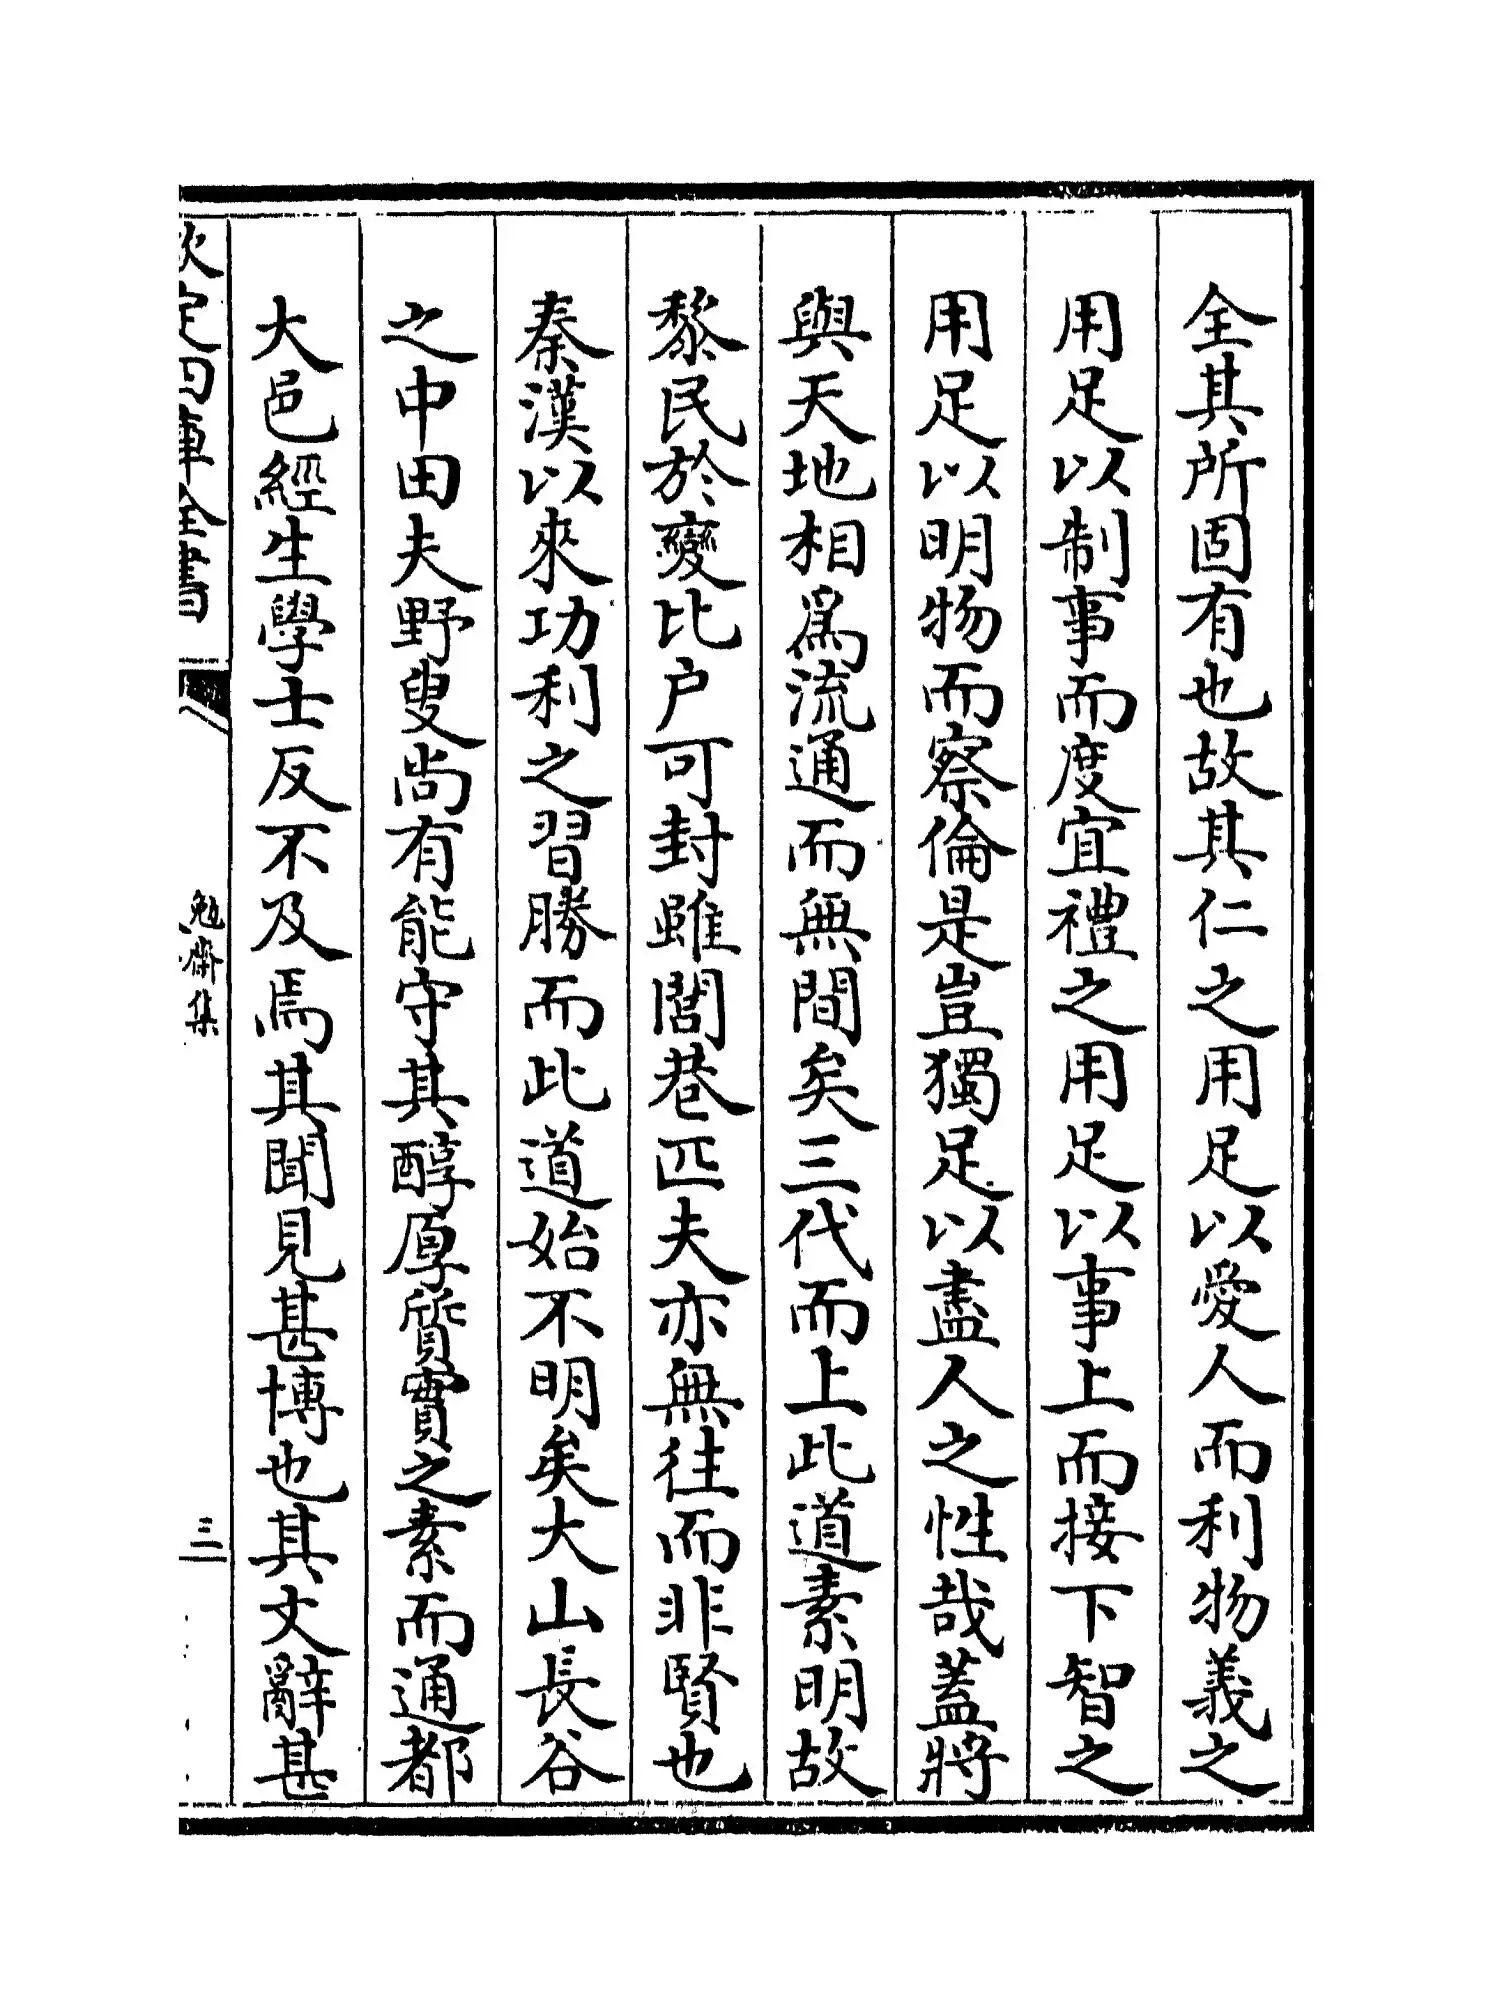 全其所固有也故其仁之用足以愛人而利物義之
用足以制事而度宜禮之用足以事上而接下智之
用足以明物而察倫是豈獨足以盡人之性哉蓋將
與天地相爲流通而無間矣三代而上此道素明故
黎民於變比户可封雖閭巷匹夫亦無往而非賢也
秦漢以來功利之習勝而此道始不明矣大山長谷
之中田夫野叟尚有能守其醇厚質實之素而通都
大邑經生學士反不及焉其聞見甚博也其文辭甚
欽定四庫全書
勉齋集
三